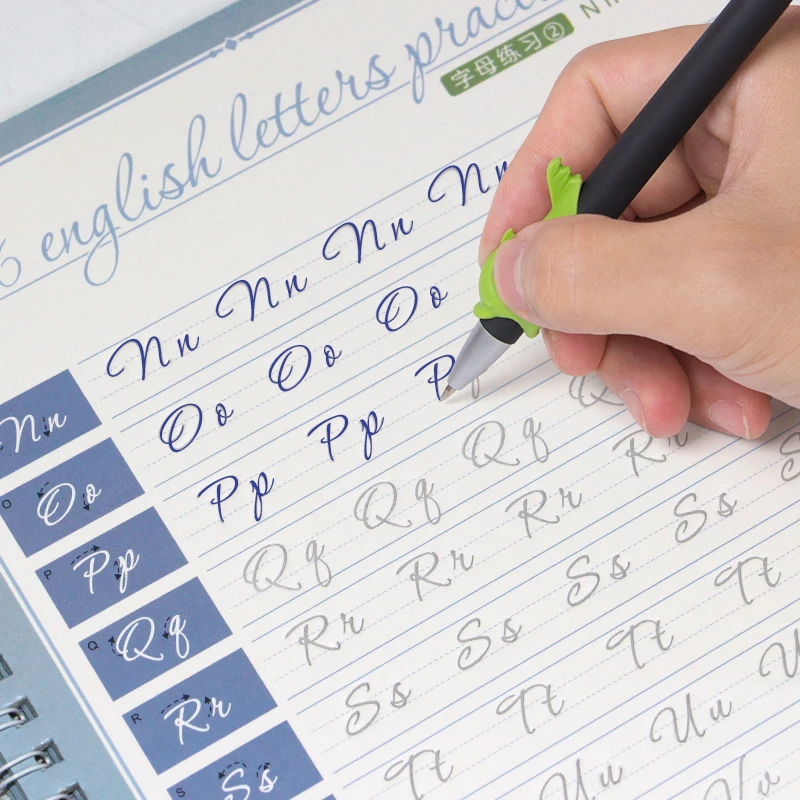 6 english letters practi
字母练习②
Nn Nn Nn Nn Nn
O Oo Oo Oo Oo
P Pp Pp Pp P
Q Qq Qq Qq Qq Q
R Rr Rr Rr Rr Rr
S Ss Ss Ss Ss Ss S
Tt Tt Tt Tt
Uu Uu U
Vv